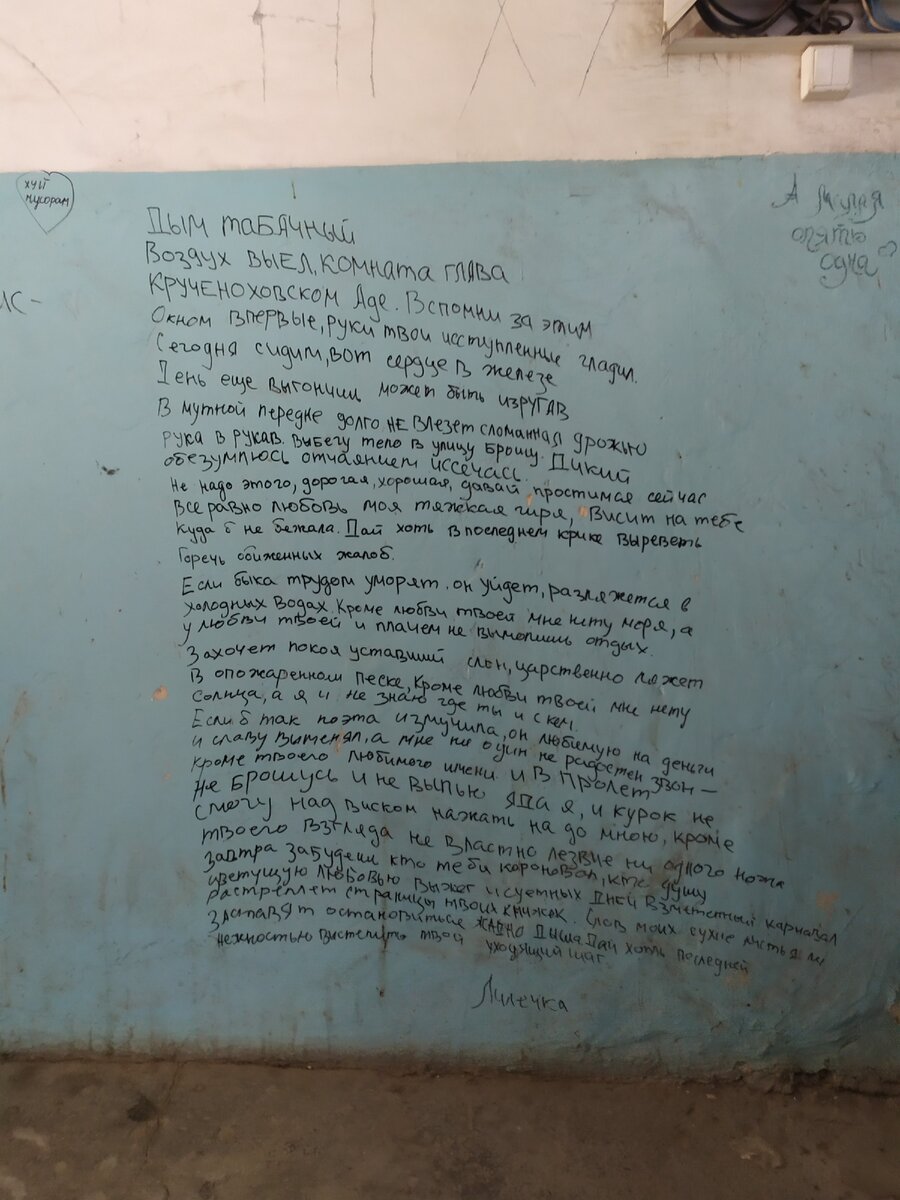 ХУЙ
мусорам
А милая
опять
одна
ИС-
Дым табачный
Воздух выел, комната глава
Крученоховском Аде. Вспомни за этим
Окном впервые, руки твои исступленные гладил.
Сегодня сидим, вот сердце в железе
День еще выгонишь может быть изругав
В мутной передне долго не влезет сломанная дрожью
рука в рукав. Выбегу тело в улицу брошу. Дикий
обезумлюсь отчаянием иссечась.
Не надо этого, дорогая, хорошая, давай простимая сейчас
Все равно любовь моя тяжкая гиря, висит на тебе
куда б не бежала. Дай хоть в последнем крике выреветь
Горечь обиженных жалоб.
Если быка трудом уморят. он уйдет, разляжется в
холодных водах. Кроме любви твоей мне нету моря, а
у любви твоей и плачем не вымолишь отдых.
Захочет покоя уставший слон, царственно ляжет
В опожаренном песке, кроме любви твоей мне нету
солнца, а я и не знаю где ты и с кем.
Если б так поэта измучила, он любимую на деньги
и славу выменял, а мне не один не радостен звон —
кроме твоего любимого имени. и в пролет
не брошусь и не выпью яда я, и курок не
смогу над виском нажать на до мною, кроме
твоего взгляда не властно лезвие ни одного ножа
завтра забудешь кто тебя короновал, кто душу
цветущую любовью выжег и суетных дней взметенный карнавал
растреплет страницы твоих книжек. Слов моих сухие листья ли
заставят остановиться жадно дыша. Дай хоть последней
нежностью выстелить твой уходящий шаг.
Лилечка